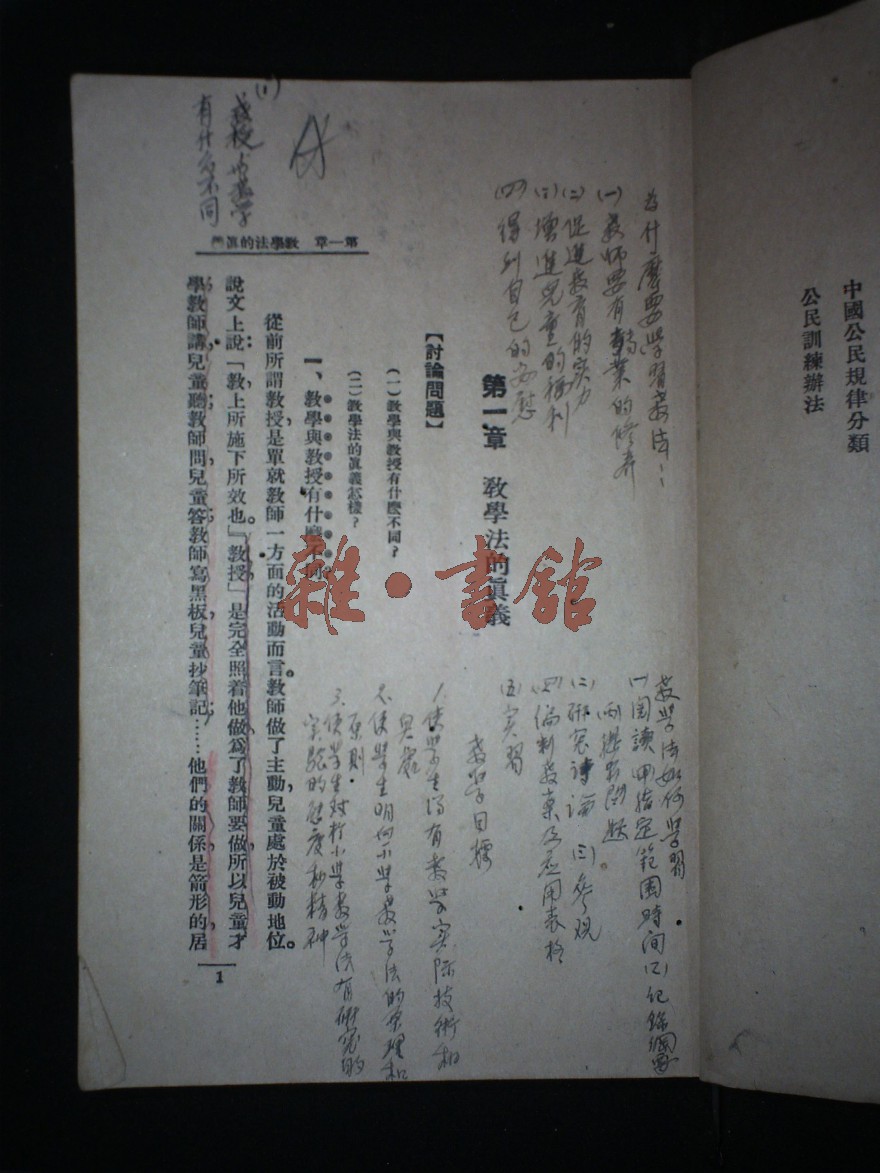 中國公民規律分類
公民訓練辦法
為什麼要學習教法：
(一)教師要有專業的修養
(二)促進教育的実力
(三)增進兒童的福利
(四)得到自己的安慰
教学法如何学習
(一)閱讀(甲)指定範圍時間(乙)纪錄綱要
(丙)提出問題
(二)研究討論 (三)參观
(四)編制教案及应用表格
(五)实習
第一章 教學法的眞義
教学目標
【討論問題】
1.使学生得有教学实际技術和
(一)教學與教授有什麼不同？
2.使学生明白小学教学法的原理和
原則
(二)教學法的眞義怎樣？
3.使学生对於小学教学法有研究的
实驗的態度和精神
一、教學與教授有什麼不同
從前所謂教授，是單就教師一方面的活動而言。教師做了主動，兒童處於被動地位。
說文上說：「教，上所施，下所效也。」「教授」是完全照着他做，爲了教師要做，所以兒童才
學，教師講，兒童聽；教師問，兒童答；教師寫黑板，兒童抄筆記……他們的關係，是箭形的，居
第一章 教學法的眞義
1
(1)
教授与教学
有什么不同
雜·書館